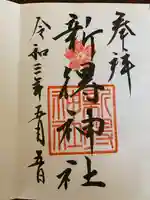 奉拝
新得神社
令和三年五月五日